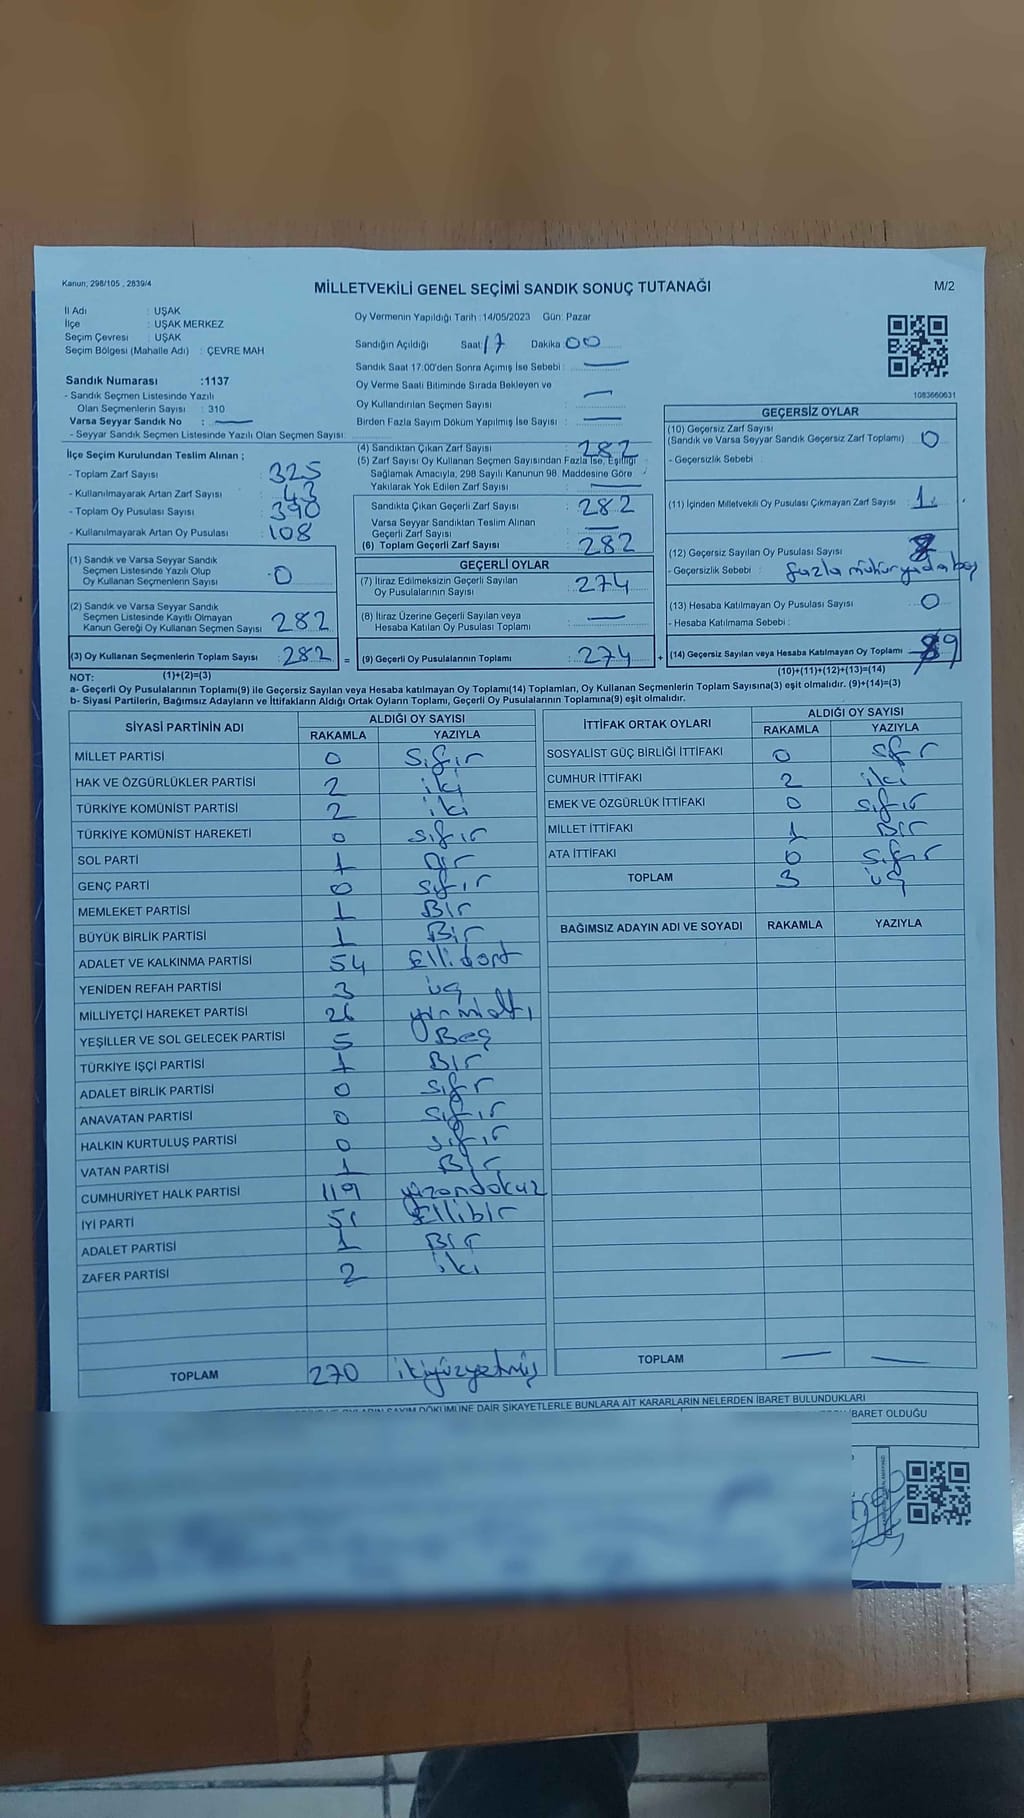 Kanun; 298/105 , 2839/4
MİLLETVEKİLİ GENEL SEÇİMİ SANDIK SONUÇ TUTANAĞI
M/2
İl Adı : UŞAK
İlçe : UŞAK MERKEZ
Seçim Çevresi : UŞAK
Seçim Bölgesi (Mahalle Adı) : ÇEVRE MAH
Sandık Numarası :1137
- Sandık Seçmen Listesinde Yazılı
Olan Seçmenlerin Sayısı : 310
Varsa Seyyar Sandık No :
- Seyyar Sandık Seçmen Listesinde Yazılı Olan Seçmen Sayısı:
Oy Vermenin Yapıldığı Tarih :14/05/2023 Gün: Pazar
Sandığın Açıldığı Saat 17 Dakika 00
Sandık Saat 17.00'den Sonra Açımış İse Sebebi :
Oy Verme Saati Bitiminde Sırada Bekleyen ve
Oy Kullandırılan Seçmen Sayısı :
Birden Fazla Sayım Döküm Yapılmış İse Sayısı :
1083660631
İlçe Seçim Kurulundan Teslim Alınan ;
- Toplam Zarf Sayısı : 325
- Kullanılmayarak Artan Zarf Sayısı : 43
- Toplam Oy Pusulası Sayısı : 390
- Kullanılmayarak Artan Oy Pusulası : 108
(1) Sandık ve Varsa Seyyar Sandık
Seçmen Listesinde Yazılı Olup
Oy Kullanan Seçmenlerin Sayısı : 0
(2) Sandık ve Varsa Seyyar Sandık
Seçmen Listesinde Kayıtlı Olmayan
Kanun Gereği Oy Kullanan Seçmen Sayısı : 282
(3) Oy Kullanan Seçmenlerin Toplam Sayısı : 282 =
(1)+(2)=(3)
(4) Sandıktan Çıkan Zarf Sayısı : 282
(5) Zarf Sayısı Oy Kullanan Seçmen Sayısından Fazla İse, Eşitliği
Sağlamak Amacıyla; 298 Sayılı Kanunun 98. Maddesine Göre
Yakılarak Yok Edilen Zarf Sayısı :
Sandıkta Çıkan Geçerli Zarf Sayısı : 282
Varsa Seyyar Sandıktan Teslim Alınan
Geçerli Zarf Sayısı :
(6) Toplam Geçerli Zarf Sayısı : 282
GEÇERLİ OYLAR
(7) İtiraz Edilmeksizin Geçerli Sayılan
Oy Pusulalarının Sayısı : 274
(8) İtiraz Üzerine Geçerli Sayılan veya
Hesaba Katılan Oy Pusulası Toplamı :
(9) Geçerli Oy Pusulalarının Toplamı : 274 +
GEÇERSİZ OYLAR
(10) Geçersiz Zarf Sayısı
(Sandık ve Varsa Seyyar Sandık Geçersiz Zarf Toplamı) : 0
- Geçersizlik Sebebi :
(11) İçinden Milletvekili Oy Pusulası Çıkmayan Zarf Sayısı : 1
(12) Geçersiz Sayılan Oy Pusulası Sayısı :
- Geçersizlik Sebebi : fazla mühür yada boş
(13) Hesaba Katılmayan Oy Pusulası Sayısı : 0
- Hesaba Katılmama Sebebi :
(14) Geçersiz Sayılan veya Hesaba Katılmayan Oy Toplamı : 9
(10)+(11)+(12)+(13)=(14)
NOT:
a- Geçerli Oy Pusulalarının Toplamı(9) ile Geçersiz Sayılan veya Hesaba katılmayan Oy Toplamı(14) Toplamları, Oy Kullanan Seçmenlerin Toplam Sayısına(3) eşit olmalıdır. (9)+(14)=(3)
b- Siyasi Partilerin, Bağımsız Adayların ve İttifakların Aldığı Ortak Oyların Toplamı, Geçerli Oy Pusulalarının Toplamına(9) eşit olmalıdır.
SİYASİ PARTİNİN ADI
ALDIĞI OY SAYISI
RAKAMLA YAZIYLA
MİLLET PARTİSİ 0 Sıfır
HAK VE ÖZGÜRLÜKLER PARTİSİ 2 iki
TÜRKİYE KOMÜNİST PARTİSİ 2 iki
TÜRKİYE KOMÜNİST HAREKETİ 0 sıfır
SOL PARTİ 1 Bir
GENÇ PARTİ 0 sıfır
MEMLEKET PARTİSİ 1 Bir
BÜYÜK BİRLİK PARTİSİ 1 Bir
ADALET VE KALKINMA PARTİSİ 54 Ellidört
YENİDEN REFAH PARTİSİ 3 üç
MİLLİYETÇİ HAREKET PARTİSİ 26 yirmialtı
YEŞİLLER VE SOL GELECEK PARTİSİ 5 Beş
TÜRKİYE İŞÇİ PARTİSİ 1 Bir
ADALET BİRLİK PARTİSİ 0 sıfr
ANAVATAN PARTİSİ 0 sıfır
HALKIN KURTULUŞ PARTİSİ 0 sıfır
VATAN PARTİSİ 1 Bir
CUMHURİYET HALK PARTİSİ 119 yüzondokuz
İYİ PARTİ 51 Ellibir
ADALET PARTİSİ 1 Bir
ZAFER PARTİSİ 2 iki
TOPLAM 270 ikiyüzyetmiş
İTTİFAK ORTAK OYLARI
ALDIĞI OY SAYISI
RAKAMLA YAZIYLA
SOSYALİST GÜÇ BİRLİĞİ İTTİFAKI 0 sfr
CUMHUR İTTİFAKI 2 iki
EMEK VE ÖZGÜRLÜK İTTİFAKI 0 sıfır
MİLLET İTTİFAKI 1 Bir
ATA İTTİFAKI 0 sıfır
TOPLAM 3 üç
BAĞIMSIZ ADAYIN ADI VE SOYADI RAKAMLA YAZIYLA
TOPLAM
DÖKÜMÜNE DAİR ŞİKAYETLERLE BUNLARA AİT KARARLARIN NELERDEN İBARET BULUNDUKLARI
BARET OLDUĞU